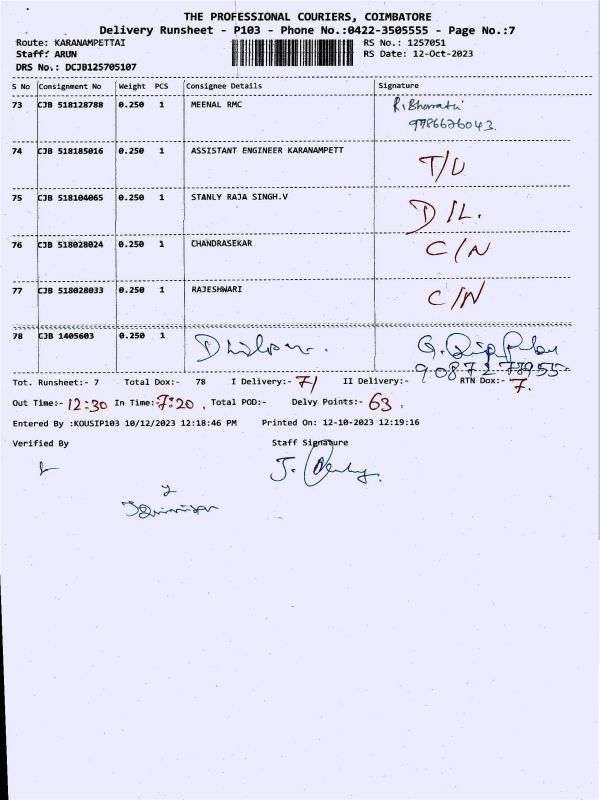 THE PROFESSIONAL COURIERS, COIMBATORE
Delivery Runsheet - P103 - Phone No.:0422-3505555 - Page No.:7
Route: KARANAMPETTAI RS No.: 1257051
Staff: ARUN RS Date: 12-Oct-2023
DRS No.: DCJB125705107
S No Consignment No Weight PCS Consignee Details Signature
73 CJB 518128788 0.250 1 MEENAL RMC
9786626043.
74 CJB 518185016 0.250 1 ASSISTANT ENGINEER KARANAMPETT T/U
75 CJB 518104065 0.250 1 STANLY RAJA SINGH.V D/L.
76 CJB 518028024 0.250 1 CHANDRASEKAR C/N
77 CJB 518028033 0.250 1 RAJESHWARI C/N
78 CJB 1405603 0.250 1
Tot. Runsheet:- 7 Total Dox:- 78 I Delivery:- 71 II Delivery:- RTN Dox:- 7.
Out Time:- 12:30 In Time:- 7:20 . Total POD:- Delvy Points:- 63 .
Entered By :KOUSIP103 10/12/2023 12:18:46 PM Printed On: 12-10-2023 12:19:16
Verified By Staff Signature